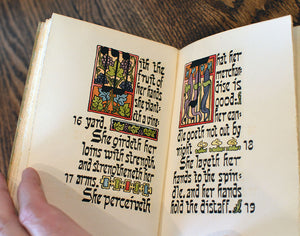 With the
fruit of
her hands
she plant-
eth a vine
16 yard.
She girdeth her
loins with strength
and strengtheneth her
17 arms.
She perceiveth
that her
merchan-
dize is
good:
her can-
dle
goeth not out by
night. 18
She layeth her
hands to the spin-
dle, and her hands
hold the distaff. 19